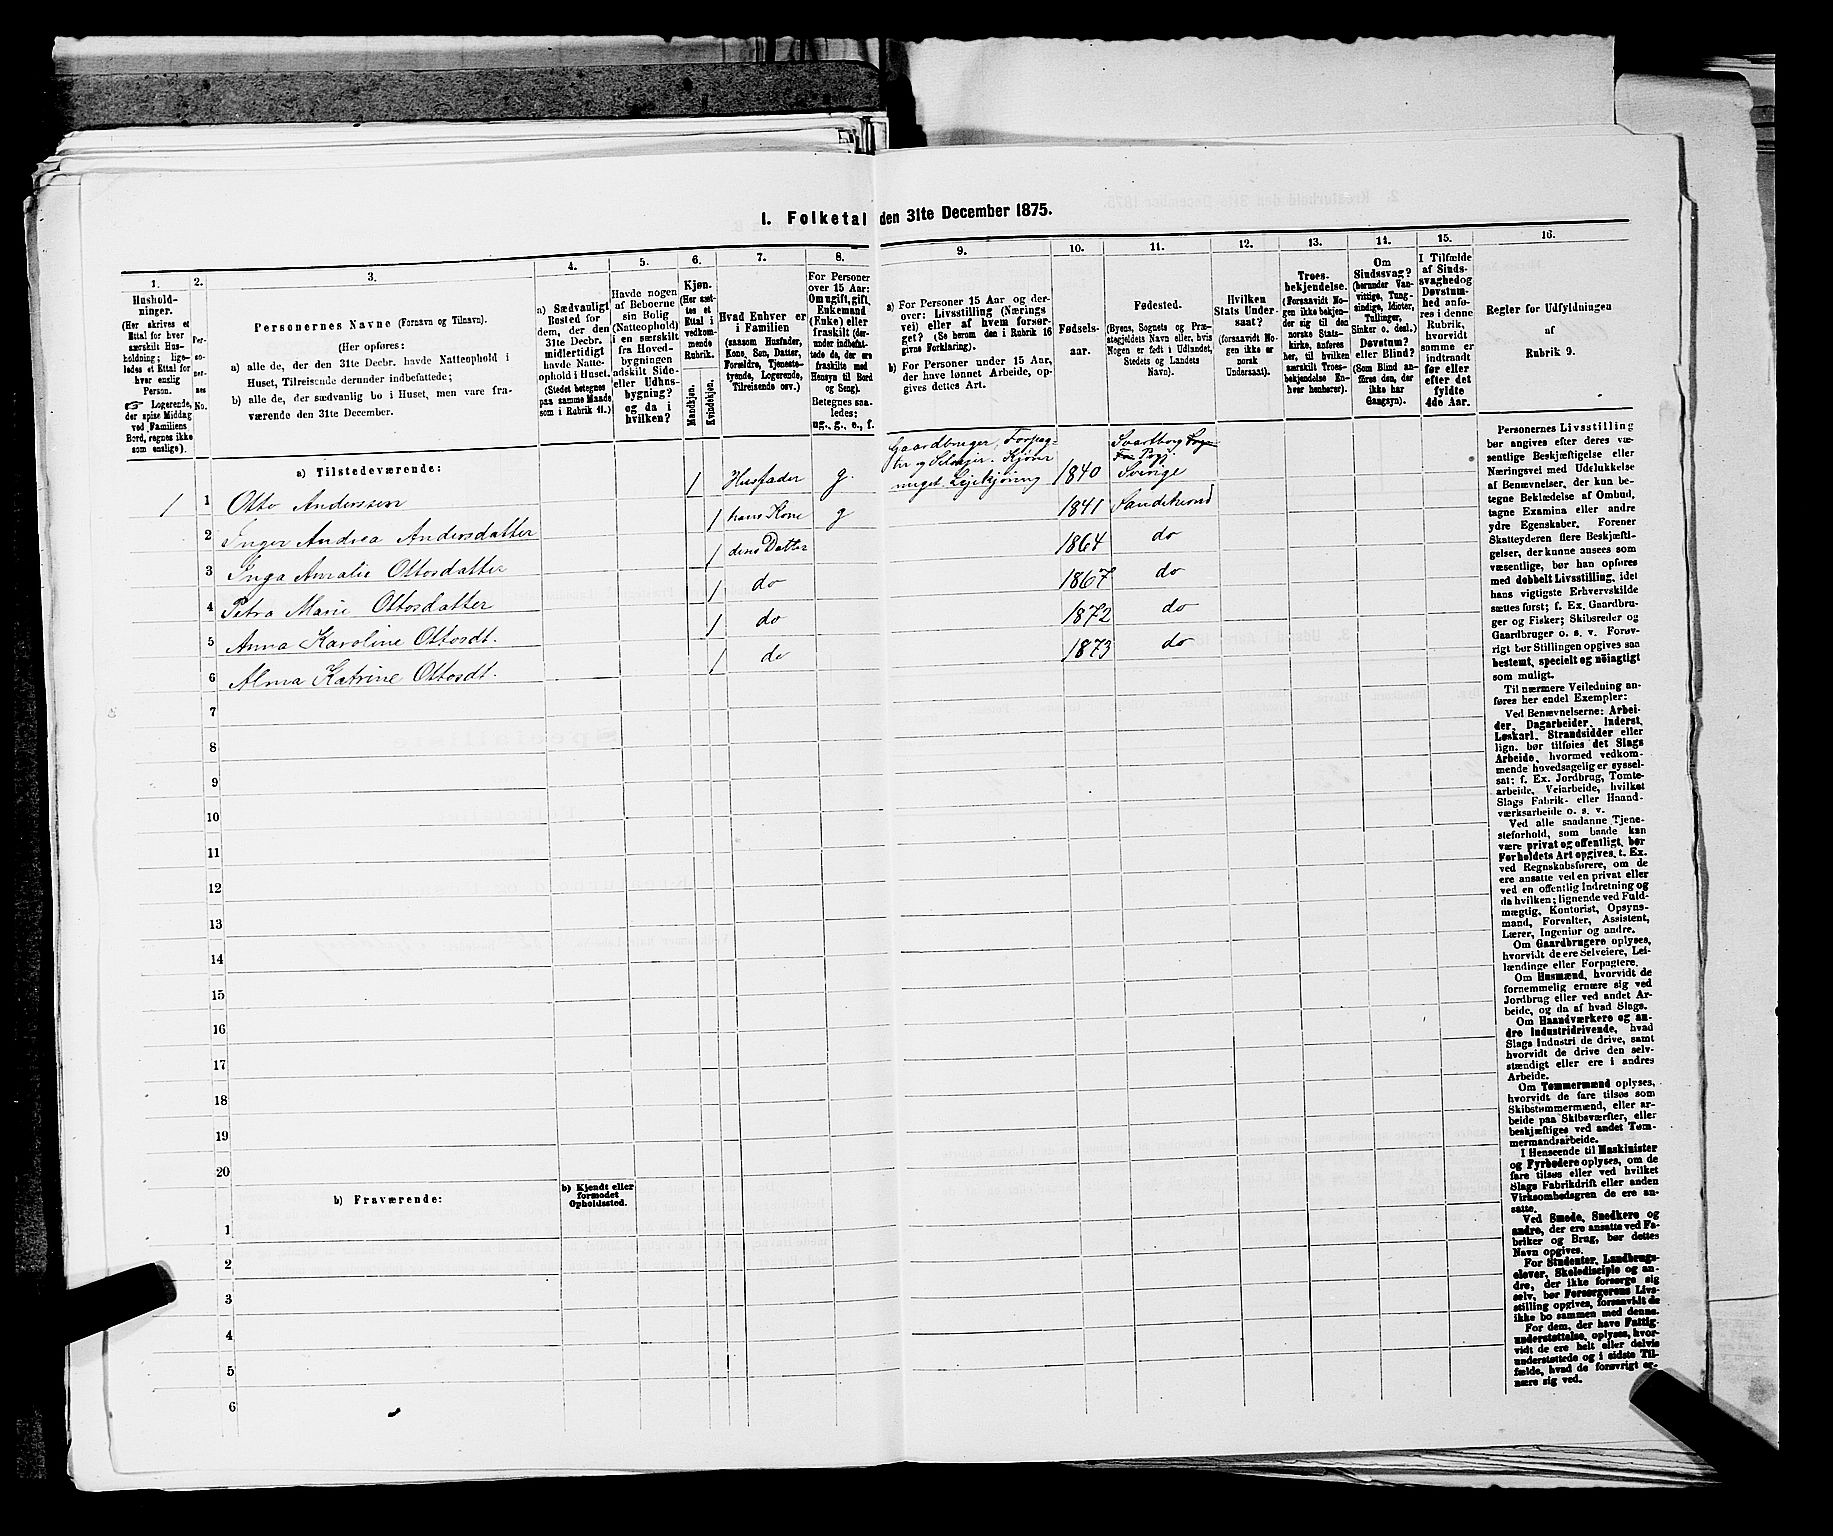 1. Folketal den 31te December 1875.
1.
2.
3.
4.
5.
6.
7.
8.
9.
10.
11.
12.
13.
14.
15.
16.
Hushold-
ninger.
(Her skrives et
Ettal for hver
særskilt Hus-
holdning; lige-
ledes et Ettal for
hver enslig
Person.
☞ Logerende,
der spise Middag
ved Familiens
Bord, regnes ikke
som enslige).
Per-
so-
ner-
nes
No.
Personernes Navne (Fornavn og Tilnavn).
(Her opføres:
a) alle de, der den 31te Decbr. havde Natteophold i
Huset, Tilreisende derunder indbefattede;
b) alle de, der sædvanlig bo i Huset, men vare fra-
værende den 31te December.
a) Sædvanligt
Bosted for
dem, der den
31te Decbr.
midlertidigt
havde Natte-
ophold i Huset.
(Stedet betegnes
paa samme Maade
som i Rubrik 11.)
Havde nogen
af Beboerne
sin Bolig
(Natteophold)
i en særskilt
fra Hoved-
bygningen
adskilt Side-
eller Udhus-
bygning?
og da i
hvilken?
Kjøn.
(Her sæt-
tes et
Ettal i
vedkom-
mende
Rubrik.
Mandkjøn.
Kvindekjøn.
Hvad Enhver er
i Familien
(saasom Husfader,
Kone, Søn, Datter,
Forældre, Tjeneste-
tyende, Logerende,
Tilreisende osv.)
For Personer
over 15 Aar:
Om ugift, gift,
Enkemand
(Enke) eller
fraskilt (der-
under indbefat-
tede de, der ere
fraskilte med
Hensyn til Bord
og Seng).
Betegnes saa-
ledes:
ug., g., e., f.
a) For Personer 15 Aar og der-
over: Livsstilling (Nærings-
vei) eller af hvem forsør-
get. (Se herom den i Rubrik 16
givne Forklaring).
b) For Personer under 15 Aar,
der have lønnet Arbeide, op-
gives dettes Art.
Fødsels-
aar.
Fødested.
(Byens, Sognets og Præ-
stegjeldets Navn eller, hvis
Nogen er født i Udlandet,
Stedets og Landets
Navn).
Hvilken
Stats Under-
saat?
(forsaavidt No-
gen ikke er
norsk
Undersaat).
Troes-
bekjendelse.
(Forsaavidt No-
gen ikke bekjen-
der sig til den
norske Stats-
kirke, anføres
her, til hvilken
særskilt Troes-
bekjendelse En-
hver henhører).
Om
Sindssvag?
(herunder Van-
vittige, Tung-
sindige, Idioter,
Tullinger,
Sinker o. desl.)
Døvstum?
eller Blind?
(Som Blind an-
føres den, der
ikke har
Gangsyn).
I Tilfælde
af Sinds-
svaghed og
Døvstum-
hed anfø-
res i denne
Rubrik,
hvorvidt
samme er
indtraadt
før eller
efter det
fyldte
4de Aar.
Regler for Udfyldningen
af
Rubrik 9.
a) Tilstedeværende:
1 1 Otto Anderssen 1 Husfader g. Gaardbruger, Forpag-
ter og Selveier. 1840
Sverige
2 Inger Andrea Andersdatter 1 hans Kone g 1841
3 Inga Amalie Ottosdatter 1 deres Datter 1864 do
4 Petra Marie Ottosdatter 1 do 1867 do
5 Anna Karoline Ottosdt. 1 do 1872 do
6 Alma Katrine Ottosdt. 1 do 1873 do
7
8
9
10
11
12
13
14
15
16
17
18
19
20
b) Fraværende:
b) Kjendt eller
formodet
Opholdssted.
1
2
3
4
5
6
Personernes Livsstilling
bør angives efter deres væ-
sentlige Beskjæftigelse eller
Næringsvei med Udelukkelse
af Benævnelser, der kun be-
tegne Beklædelse af Ombud,
tagne Examina eller andre
ydre Egenskaber. Forener
Skatteyderen flere Beskjæfti-
gelser, der kunne ansees som
væsentlige, bør han opføres
med dobbelt Livsstilling, idet
hans vigtigste Erhvervskilde
sættes først; f. Ex. Gaardbru-
ger og Fisker; Skibsreder og
Gaardbruger o. s. v. Forøv-
rigt bør Stillingen opgives saa
bestemt, specielt og nöiagtigt
som muligt.
Til nærmere Veiledning an-
føres her endel Exempler:
Ved Benævnelserne: Arbei-
der, Dagarbeider, Inderst,
Løskarl, Strandsidder eller
lign. bør tilføies det Slags
Arbeide, hvormed vedkom-
mende hovedsagelig er syssel-
sat; f. Ex. Jordbrug, Tomte-
arbeide, Veiarbeide, hvilket
Slags Fabrik- eller Haand-
værksarbeide o. s. v.
Ved alle saadanne Tjene-
steforhold, som baade kan
være privat og offentligt, bør
Forholdets Art opgives, t. Ex.
ved Regnskabsførere, om de
ere ansatte ved en privat eller
ved en offentlig Indretning og
da hvilken; lignende ved Fuld-
mægtig, Kontorist, Opsyns-
mand, Forvalter, Assistent,
Lærer, Ingeniør og andre.
Om Gaardbrugere oplyses,
hvorvidt de ere Selveiere, Lei-
lændinge eller Forpagtere.
Om Husmænd, hvorvidt de
fornemmelig ernære sig ved
Jordbrug eller ved andet Ar-
beide, og da af hvad Slags.
Om Haandværkere og an-
dre Industridrivende, hvad
Slags Industri de drive, samt
hvorvidt de drive den selv-
stændigt eller ere i andres
Arbeide.
Om Tømmermænd oplyses,
hvorvidt de fare tilsøs som
Skibstømmermænd, eller ar-
beide paa Skibsværfter, eller
beskjæftiges ved andet Tøm-
mermandsarbeide.
I Henseende til Maskinister
og Fyrbødere oplyses, om de
fare tilsøs eller ved hvilket
Slags Fabrikdrift eller anden
Virksomhedsgren de ere an-
satte.
Ved Smede, Snedkere og
andre, der ere ansatte ved Fa-
briker og Brug, bør dettes
Navn opgives.
For Studenter, Landbrugs-
elever, Skoledisciple og an-
dre, der ikke forsørge sig
selv, bør Forsørgerens Livs-
stilling opgives, forsaavidt de
ikke bo sammen med denne.
For dem, der have Fattig-
understøttelse, oplyses, hvor-
vidt de ere helt eller delvis
understøttede og i sidste Til-
fælde, hvad de forøvrigt er-
nære sig ved.